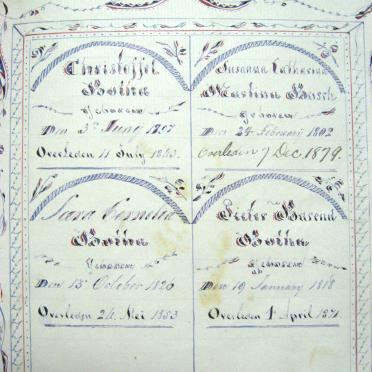 Christoffel
Botha
Geboren
Den 3e Juny 1797
Overleden 11 July 1883.
Susanna Catharina
Martina Basch
Geboren
Den 24 February 1802
Overleden 7 Dec. 1879.
Sara Cornelia
Botha
Geboren
Den 15 October 1820
Overleden 24 Mei 1853
Pieter Barend
Botha
Geboren
Den 19 January 1818
Overleden 1 April 1871.